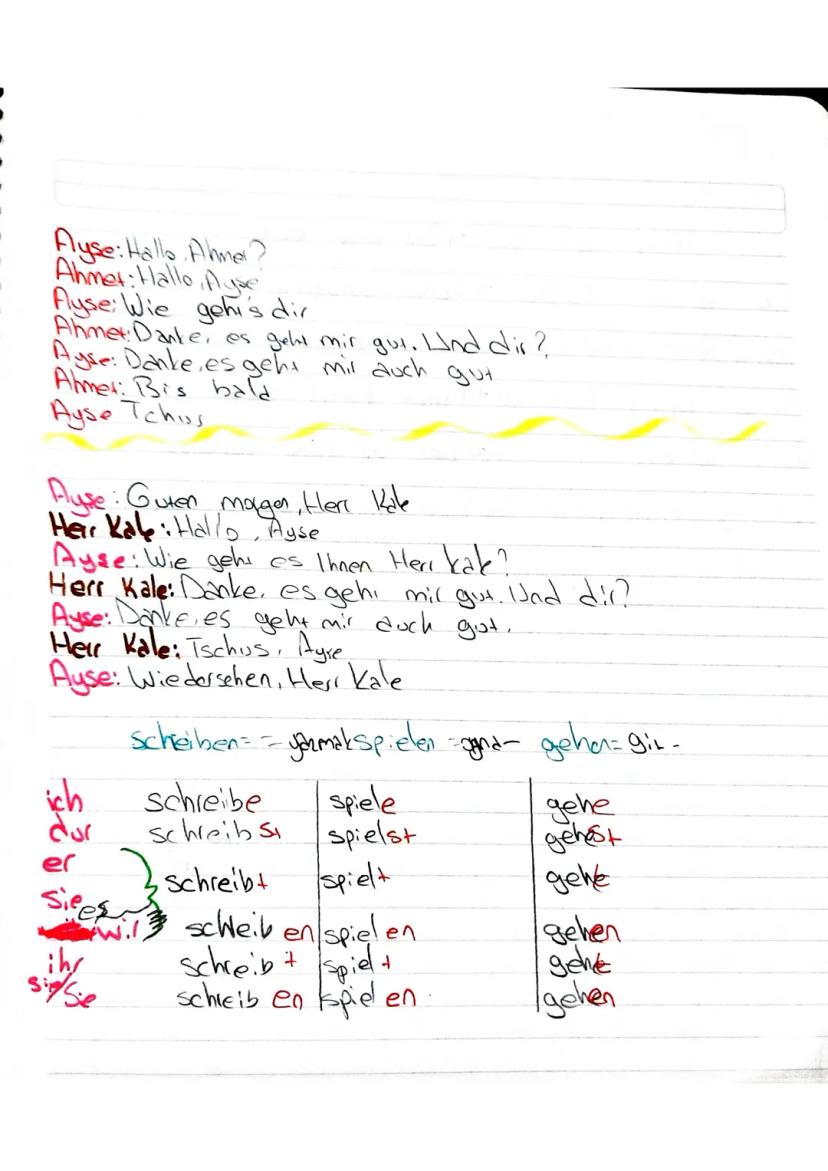 Ayse: Hallo, Ahmet?
Ahmet: Hallo, Ayse
Ayse: Wie geht's dir
Ahmet: Danke, es geht mir gut. Und dir?
Ayse: Danke, es geht mir auch gut
Ahmet: Bis bald
Ayse Tchus
Ayse: Guten morgen, Herr Kale
Herr Kale: Hallo, Ayse
Ayse: Wie geht es Ihnen Herr kale?
Herr Kale: Danke, es geht mir gut. Und dir?
Ayse: Danke, es geht mir auch gut.
Herr Kale: Tschus, Ayse
Ayse: Wiedersehen, Herr Kale
scheiben= = yazmak spielen = gehen= git-
ich schreibe spiele gehe
du schreibst spielst gehst
er
sie es schreibt spielt geht
wir schreiben spielen gehen
ihr schreibt spielt geht
sie/Sie schreiben spielen gehen